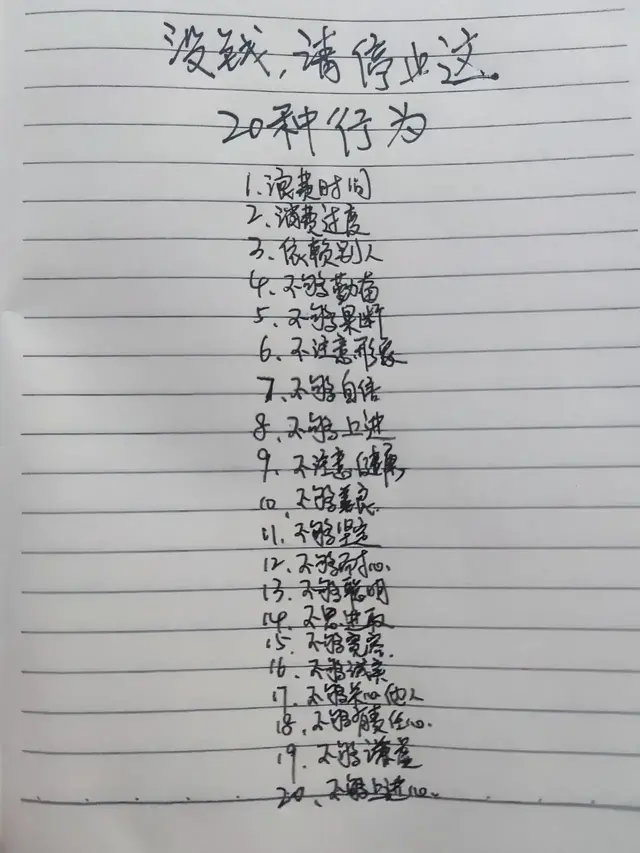 没钱,请停止这
20种行为
1、浪费时间
2、消费过度
3、依赖别人
4、不够勤奋
5、不够果断
6、不注意形象
7、不够自信
8、不够上进
9、不注意健康
10、不够善良
11、不够坚定
12、不够耐心
13、不够聪明
14、不思进取
15、不够宽容
16、不够诚实
17、不够关心他人
18、不够有责任心
19、不够谦虚
20、不够上进心